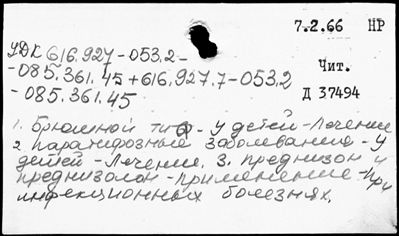 7.2.66 НР
УДК 616.927-053.2-
-085.361.45+616.927.7-053.2
-085.361.45
Чит.
Д 37494
1. Брюшной тиф - у детей - Лечение
2. Паратифозные заболевания - у
детей - Лечение. 3. преднизон и
преднизолон - применение - при
инфекционных болезнях.